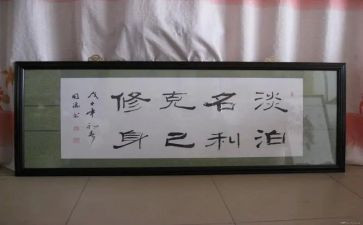 淡泊
名利
克己
修身
戊子年初春